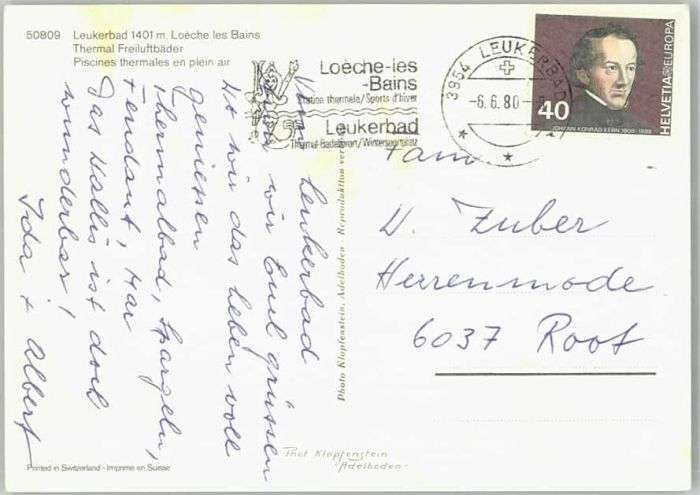 50809 Leukerbad 1401 m. Loèche les Bains
Thermal Freiluftbäder
Piscines thermales en plein air
Loèche-les
-Bains
Station thermale/Sports d'hiver
Leukerbad
Thermal-Badekuren/Wintersportplatz
3954 LEUKERBAD
-6.6.80-
40
HELVETIA EUROPA
JOHANN KONRAD KERN 1808-1888
Leukerbad
wir Euch grüssen
Hat wir das Leben voll
geniessen
Thermalbad, Spargeln,
Fendant,
Das Wallis ist doch
wunderbar!
Ida + Albert
Fam
W. Zuber
Herrenmode
6037 Root
Photo Klopfenstein, Adelboden - Reproduktion verboten
Phot Klopfenstein
"Adelboden"
Printed in Switzerland - Imprimé en Suisse